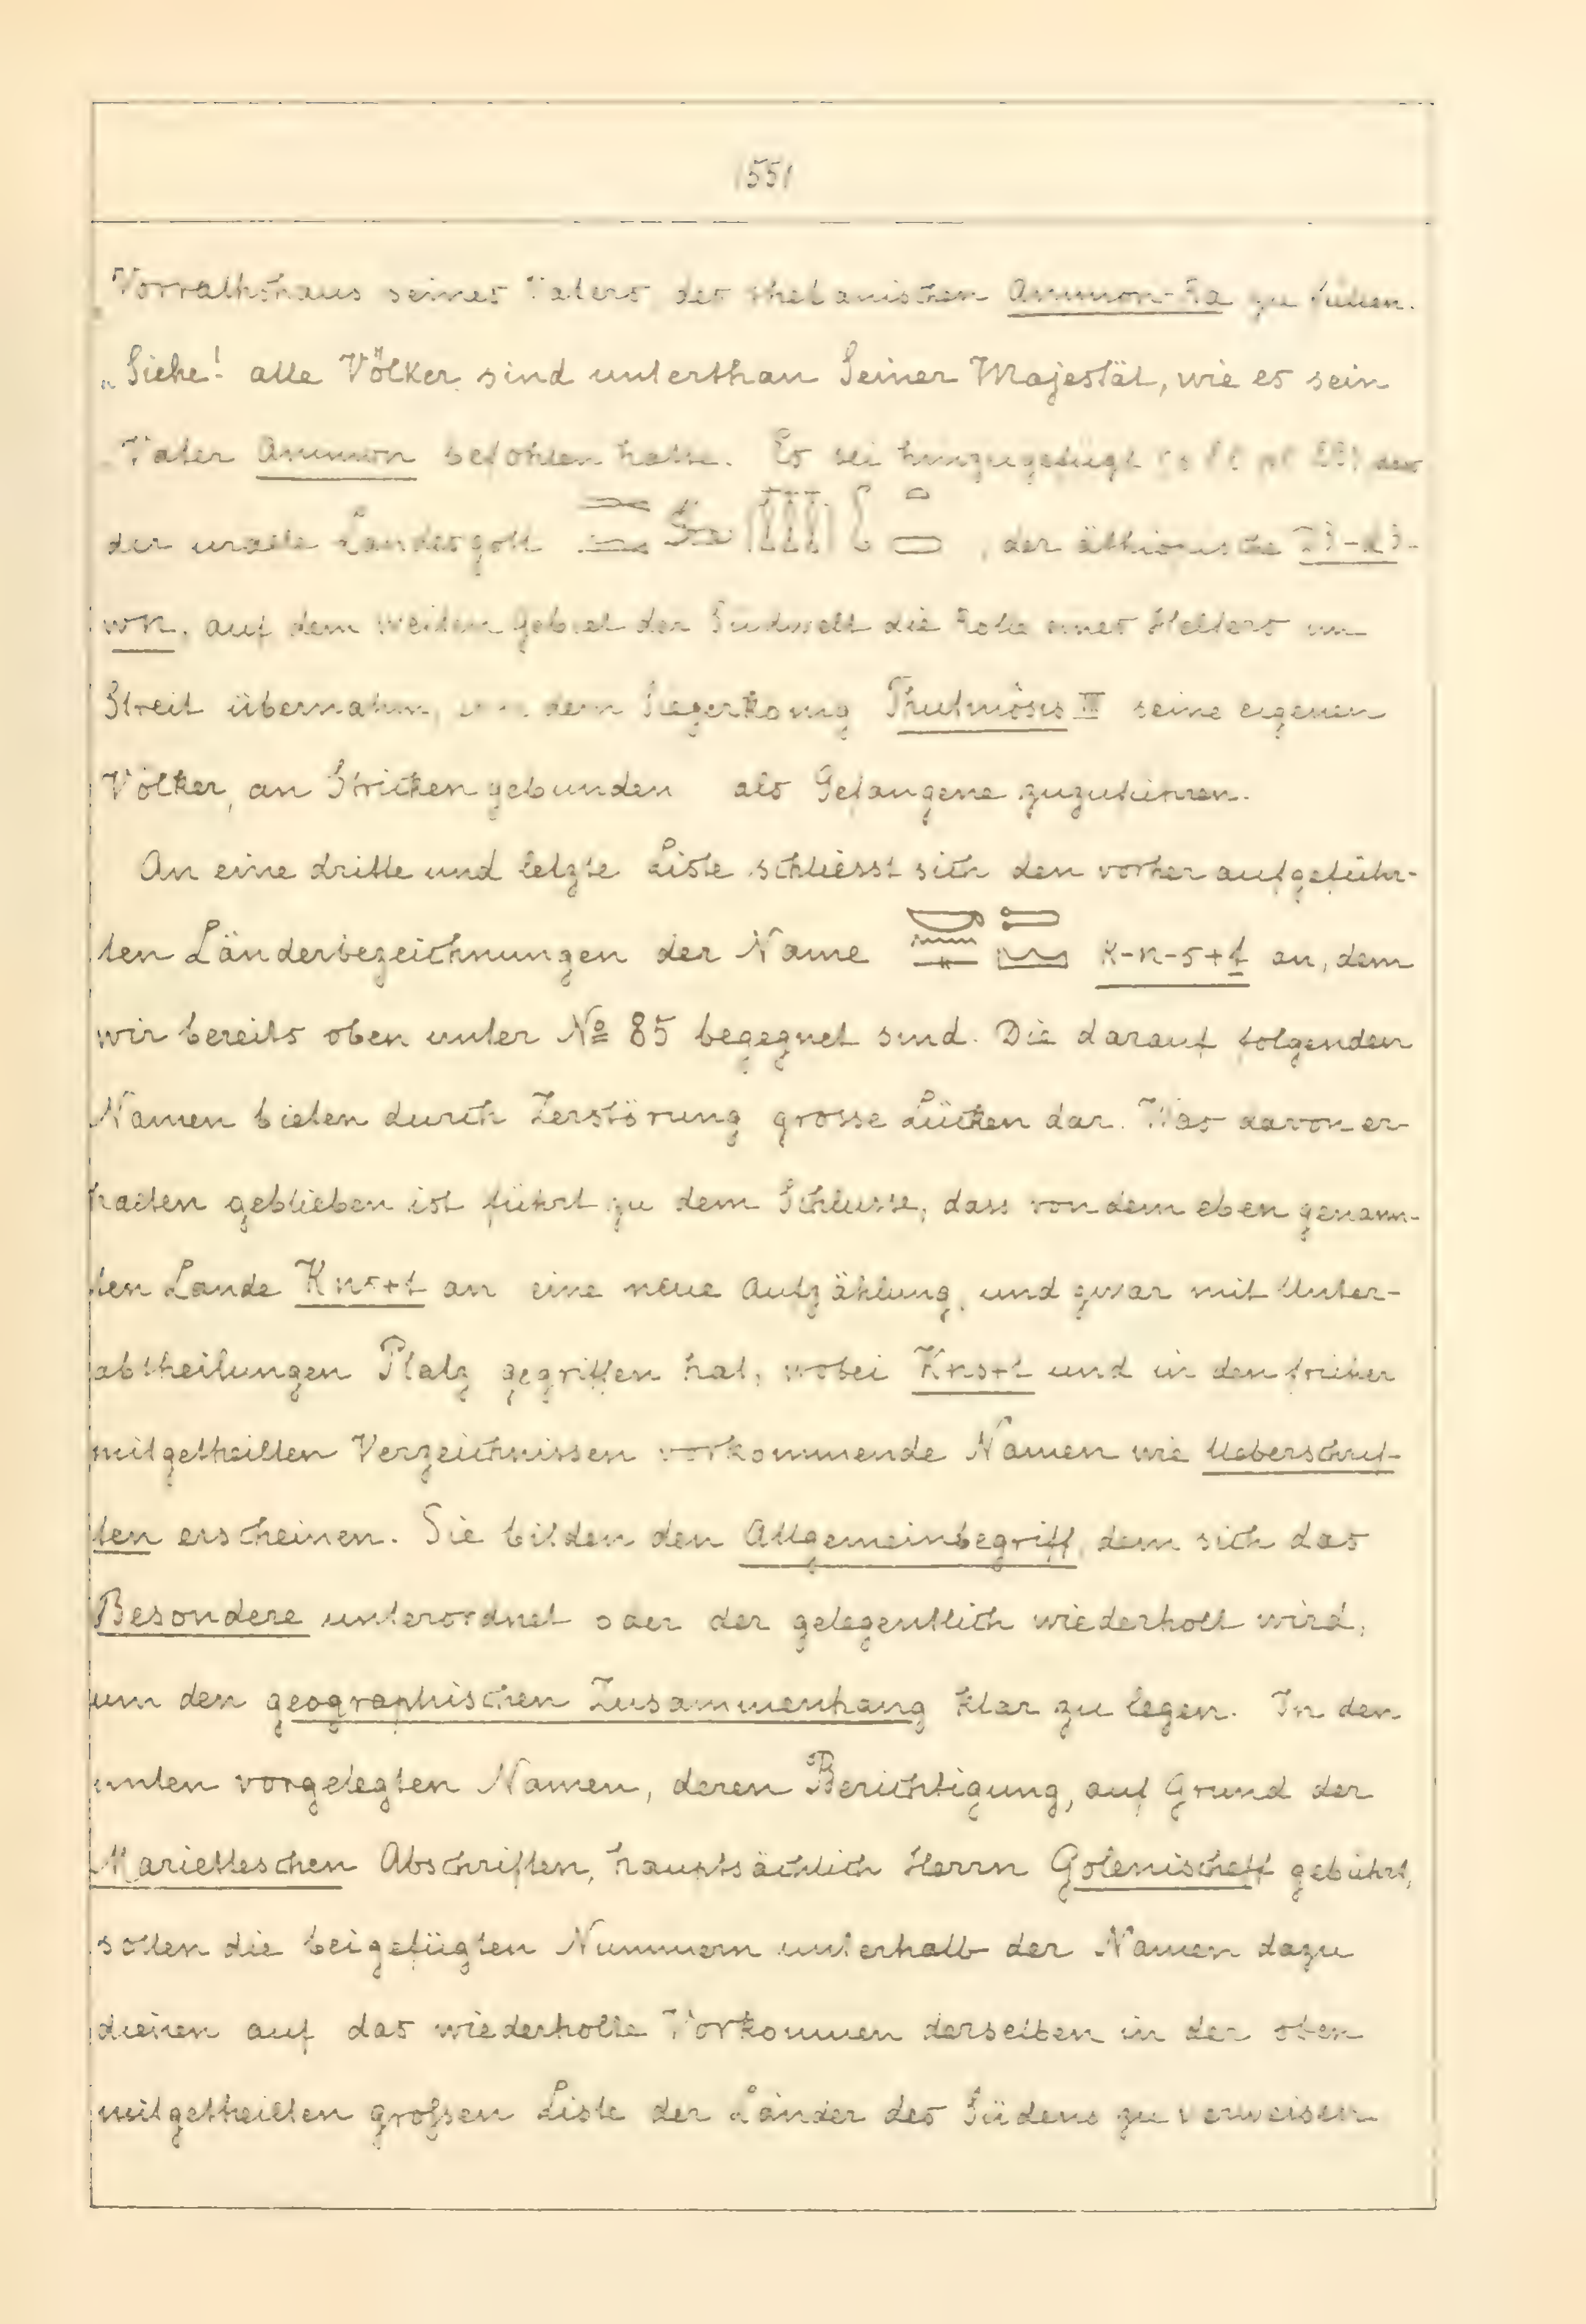 1551
Vorrathshaus seines Vaters des thebanischen Ammon-Ra zu füllen.
„Siehe! alle Völker sind unterthan Seiner Majestät, wie es sein
Vater Ammon befohlen hatte. Es sei hinzugefügt das
der uralte Landesgott , der äthiopische
wn, auf dem weiten Gebiet der Südwelt die Rolle eines Helfers im
Streit übernahm, um dem Siegerkönig Thutmosis III seine eigenen
Völker, an Stricken gebunden als Gefangene zuzuführen.
An eine dritte und letzte Liste schliesst sich den vorher aufgeführ-
ten Länderbezeichnungen der Name K-n-s+t an, dem
wir bereits oben unter No 85 begegnet sind. Die darauf folgenden
Namen bieten durch Zerstörung grosse Lücken dar. Was davon er-
halten geblieben ist führt zu dem Schlusse, dass von dem eben genann-
ten Lande Kns+t an eine neue Aufzählung, und zwar mit Unter-
abtheilungen Platz gegriffen hat, wobei Kns+t und in den früher
mitgetheilten Verzeichnissen vorkommende Namen wie Ueberschrif-
ten erscheinen. Sie bilden den Allgemeinbegriff, dem sich das
Besondere unterordnet oder der gelegentlich wiederholt wird,
um den geographischen Zusammenhang klar zu legen. In den
unten vorgelegten Namen, deren Berichtigung, auf Grund der
Marietteschen Abschriften, hauptsächlich Herrn Golenischeff gebührt,
sollen die beigefügten Nummern unterhalb der Namen dazu
dienen auf das wiederholte Vorkommen derselben in der oben
mitgetheilten großen Liste der Länder des Südens zu verweisen